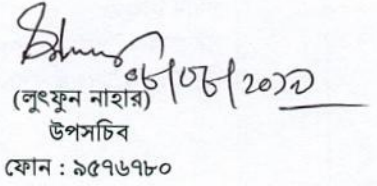 ০৮/০৮/২০১৯
(লুৎফুন নাহার)
উপসচিব
ফোন : ৯৫৭৬৭৮০